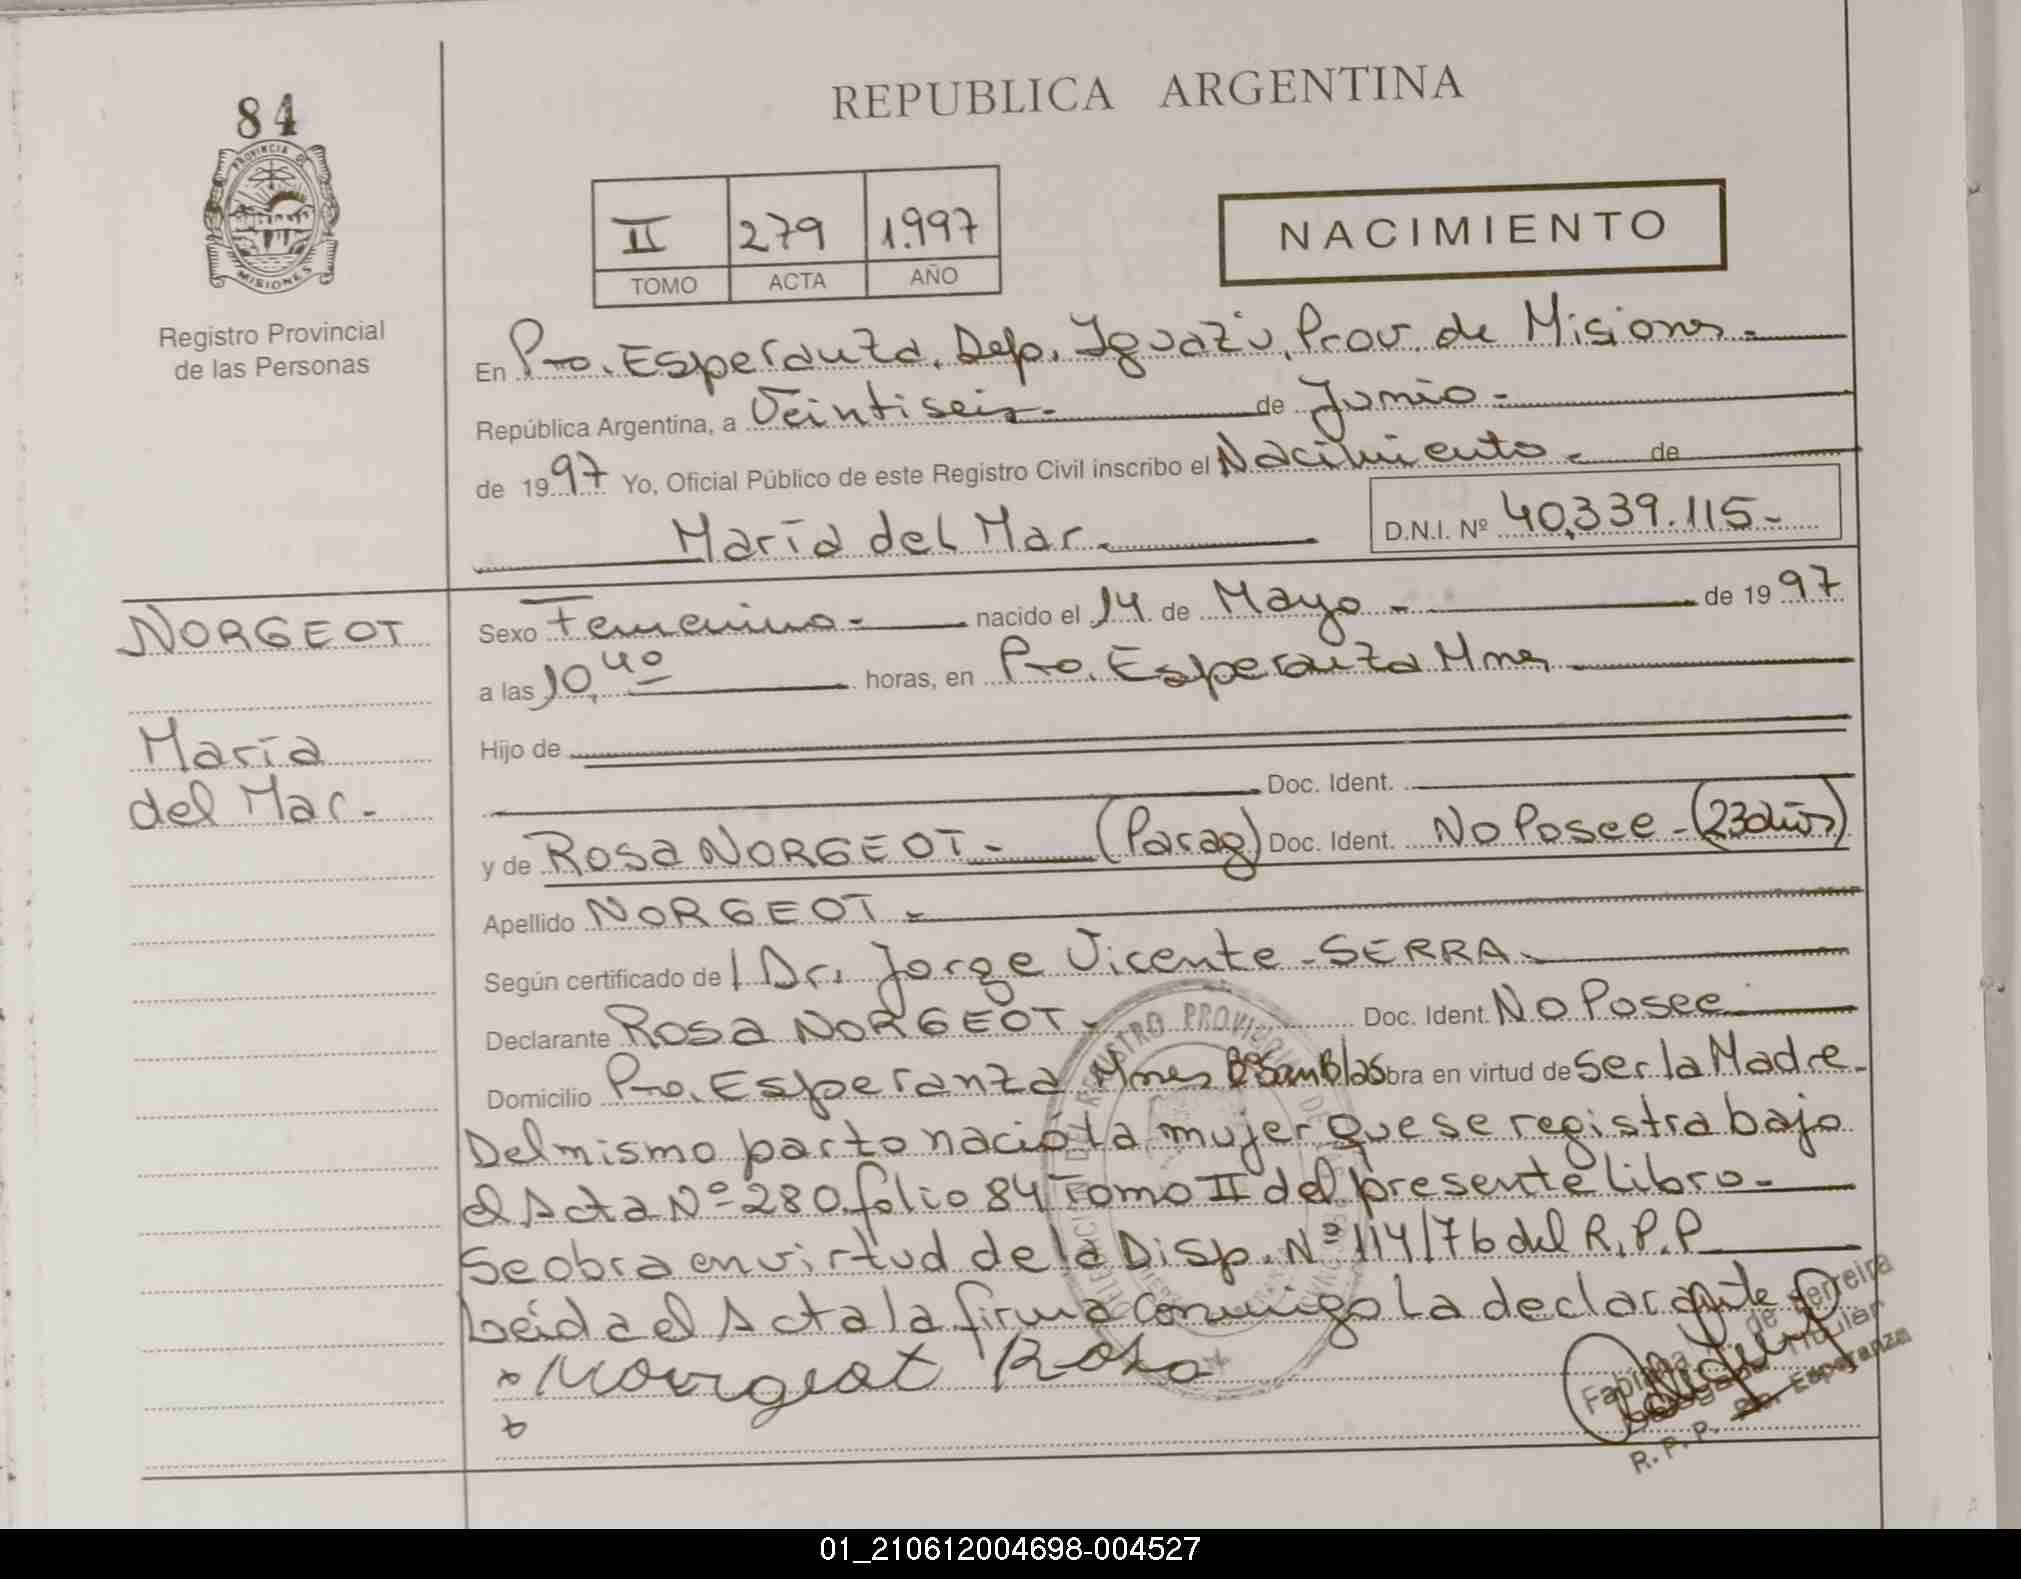 84
PROVINCIA DE
MISIONES
Registro Provincial
de las Personas
REPUBLICA ARGENTINA
II 279 1.997
TOMO ACTA AÑO
NACIMIENTO
En Pto. Esperanza, Dep. Iguazú, Prov. de Misiones.-
República Argentina, a Veintiseis.- de Junio.-
de 1997 Yo, Oficial Público de este Registro Civil inscribo el Nacimiento.- de
María del Mar.- D.N.I. Nº 40.339.115.-
NORGEOT
María
del Mar.-
Sexo Femenino.- nacido el 14 de Mayo.- de 1997
a las 10,40 horas, en Pto. Esperanza Mnes
Hijo de
Doc. Ident.
y de Rosa NORGEOT.- (Parag) Doc. Ident. No Posee.- (23años)
Apellido NORGEOT.-
Según certificado de l Dr. Jorge Vicente SERRA.-
Declarante Rosa NORGEOT.- Doc. Ident. No Posee.-
Domicilio Pto. Esperanza Mnes Bº San Blas bra en virtud de Ser la Madre.-
Del mismo parto nació la mujer que se registra bajo
el Acta Nº 280 folio 84 Tomo II del presente Libro.-
Se obra en virtud de la Disp. Nº 114/76 del R.P.P
Leída el Acta la firma conmigo la declarante
Norgeot Rosa
de Ferreira
Delegada Titular
R.P.P. Pto. Esperanza
01_210612004698-004527